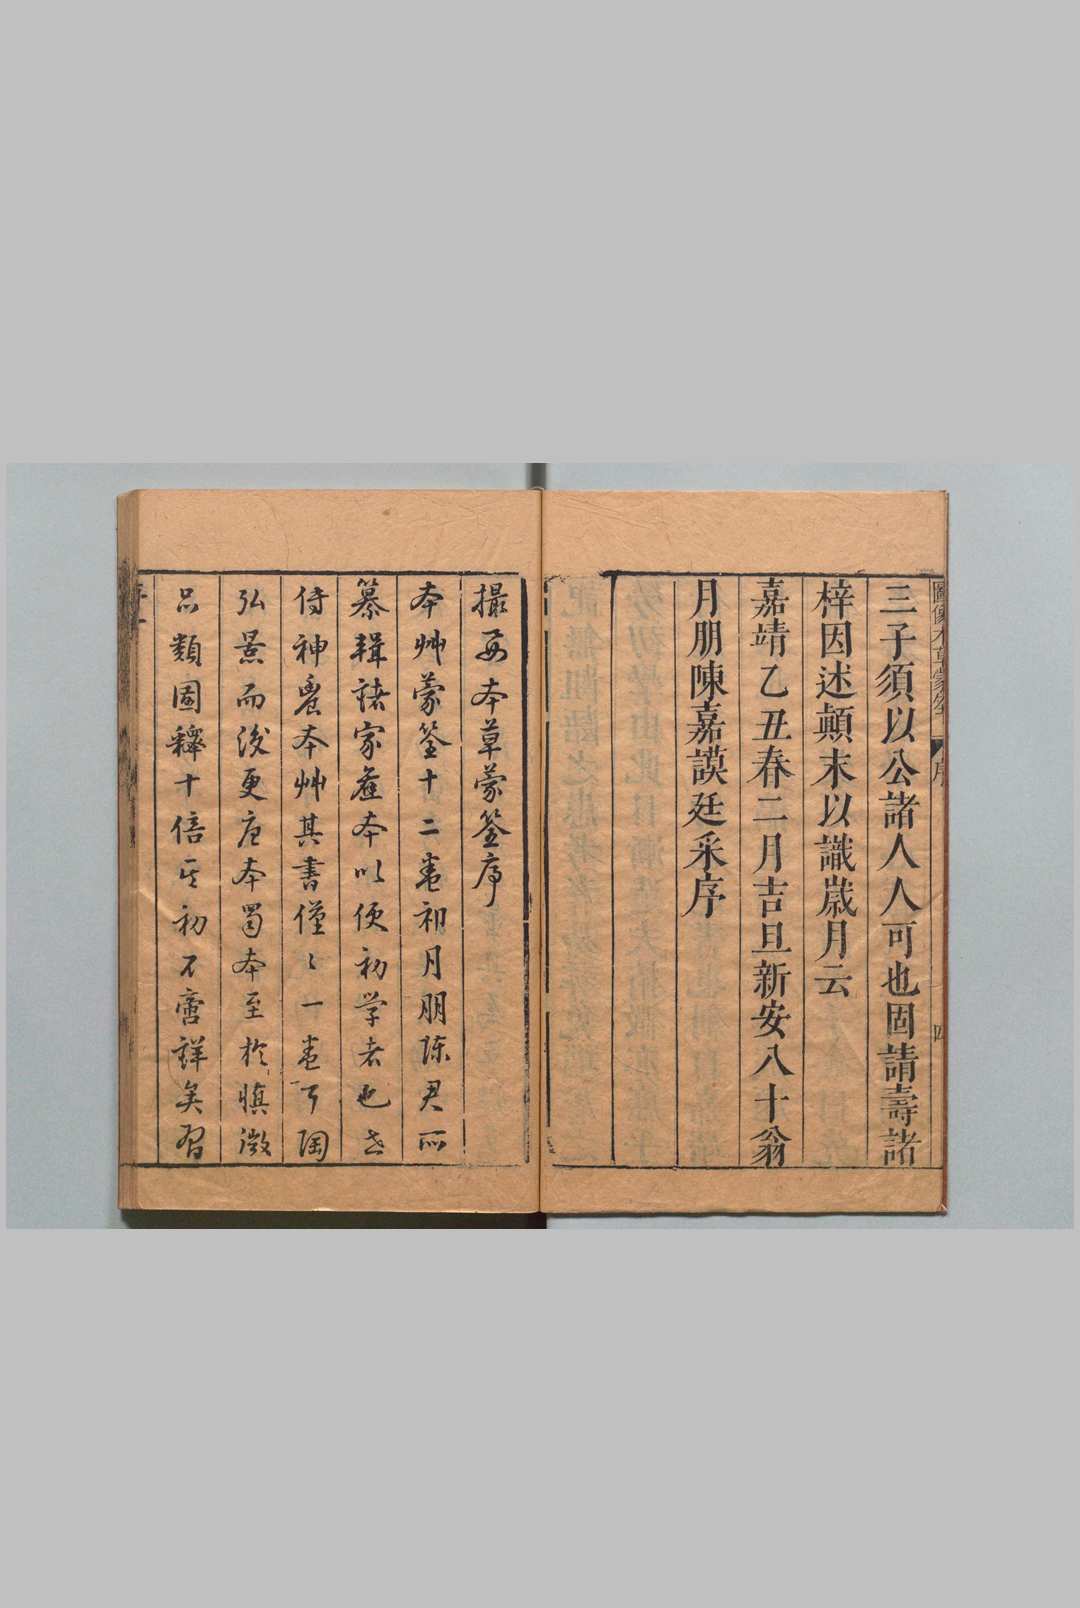 三子須以公諸人人可也固請壽諸
梓因述顛末以識歲月云
嘉靖乙丑春二月吉旦新安八十翁
月朋陳嘉謨廷采序
撮要本草蒙筌序
本艸蒙筌十二卷初月朋陳君所
纂輯諸家舊本以便初学者也古
侍神農本艸其書僅〻一卷耳陶
弘景而後更唐本蜀本至於慎微
品類圖釋十倍其初不啻詳矣習